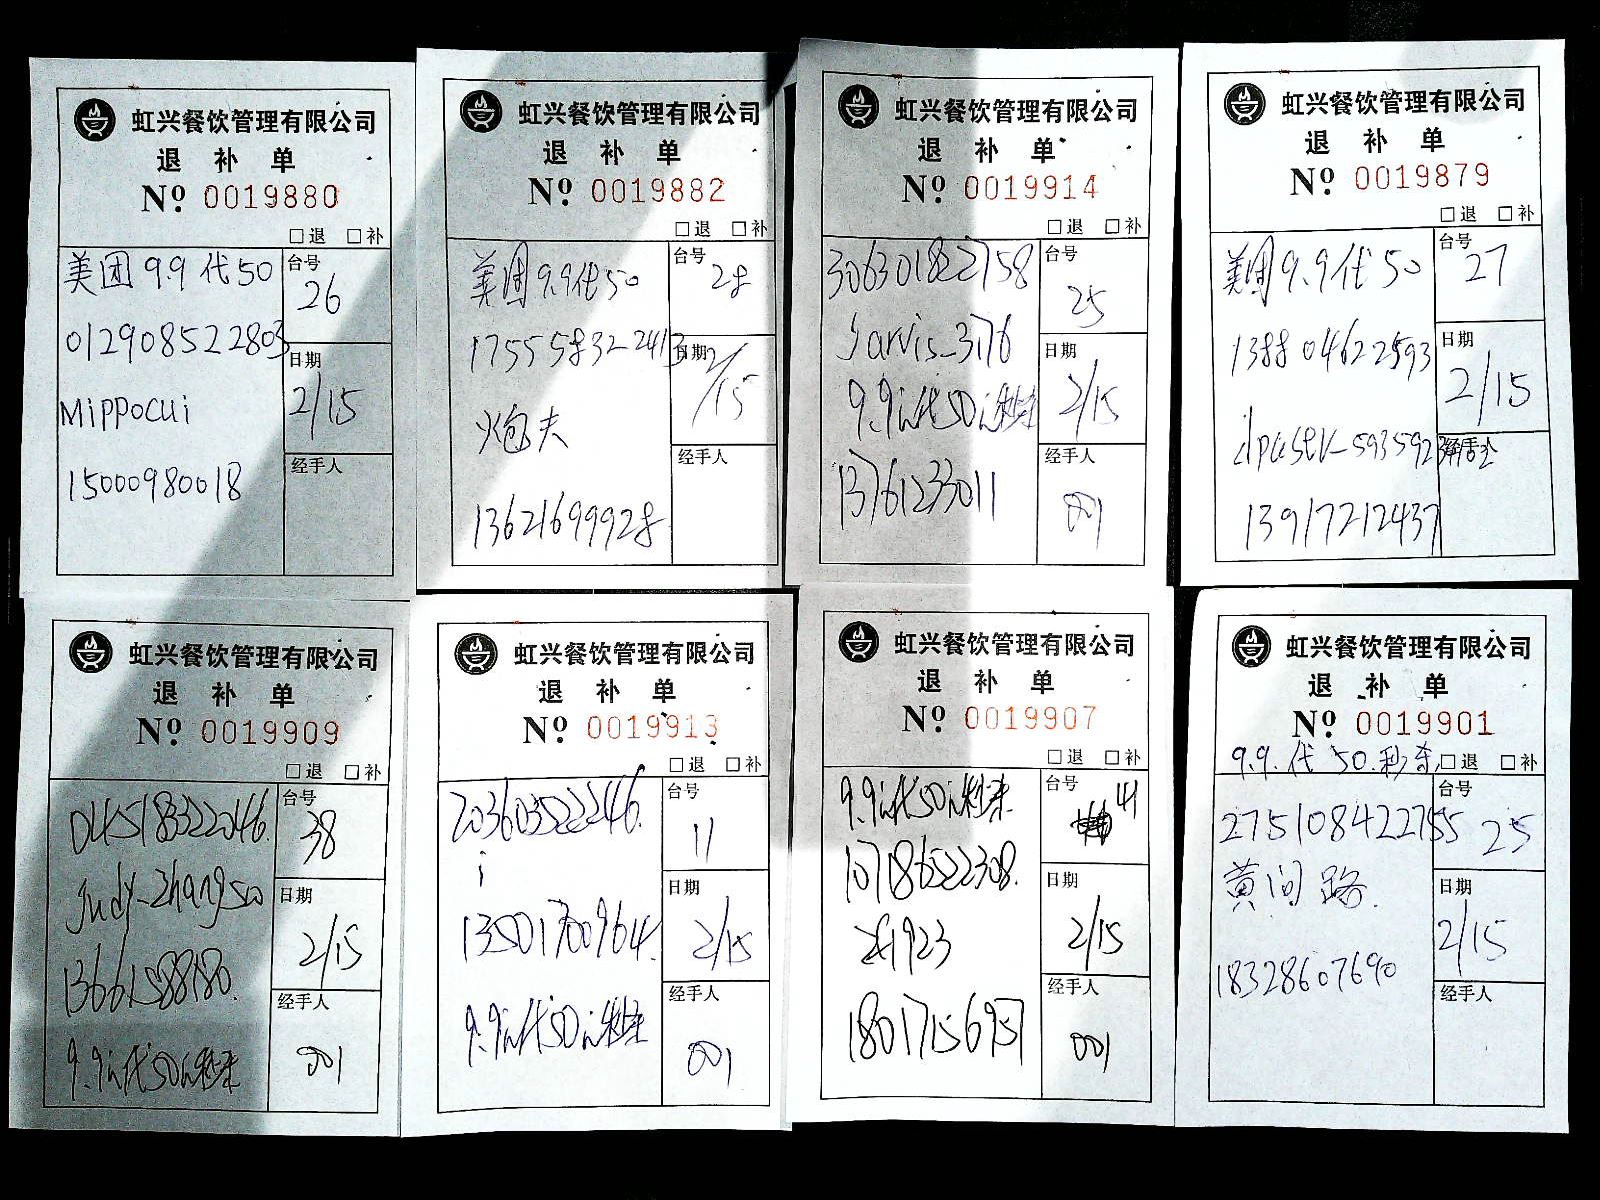 虹兴餐饮管理有限公司
退 补 单
№ 0019880
□退 □补
美团9.9代50
012908522803
Mippocui
15000980018
台号
26
日期
2/15
经手人
虹兴餐饮管理有限公司
退 补 单
№ 0019882
□退 □补
美团9.9代50
175558322413
炮夫
13621699928
台号
28
日期
2/15
经手人
虹兴餐饮管理有限公司
退 补 单
№ 0019914
□退 □补
306301822758
Jarvis_3176
9.9元代50元秒杀
13761233011
台号
25
日期
2/15
经手人
001
虹兴餐饮管理有限公司
退 补 单
№ 0019879
□退 □补
美团9.9代50
138804622593
13917212437
台号
27
日期
2/15
经手人
虹兴餐饮管理有限公司
退 补 单
№ 0019909
□退 □补
045183322046.
Judy_zhang500
13661588180.
9.9元代50元秒杀
台号
38
日期
2/15
经手人
001
虹兴餐饮管理有限公司
退 补 单
№ 0019913
□退 □补
203603522246.
i
13501700964.
9.9元代50元秒杀
台号
11
日期
2/15
经手人
001
虹兴餐饮管理有限公司
退 补 单
№ 0019907
□退 □补
9.9元代50元秒杀
107186522308.
18017156957
台号
41
日期
2/15
经手人
001
虹兴餐饮管理有限公司
退 补 单
№ 0019901
9.9.代50.秒杀
□退 □补
275108422755
黄问路.
18328607690
台号
25
日期
2/15
经手人